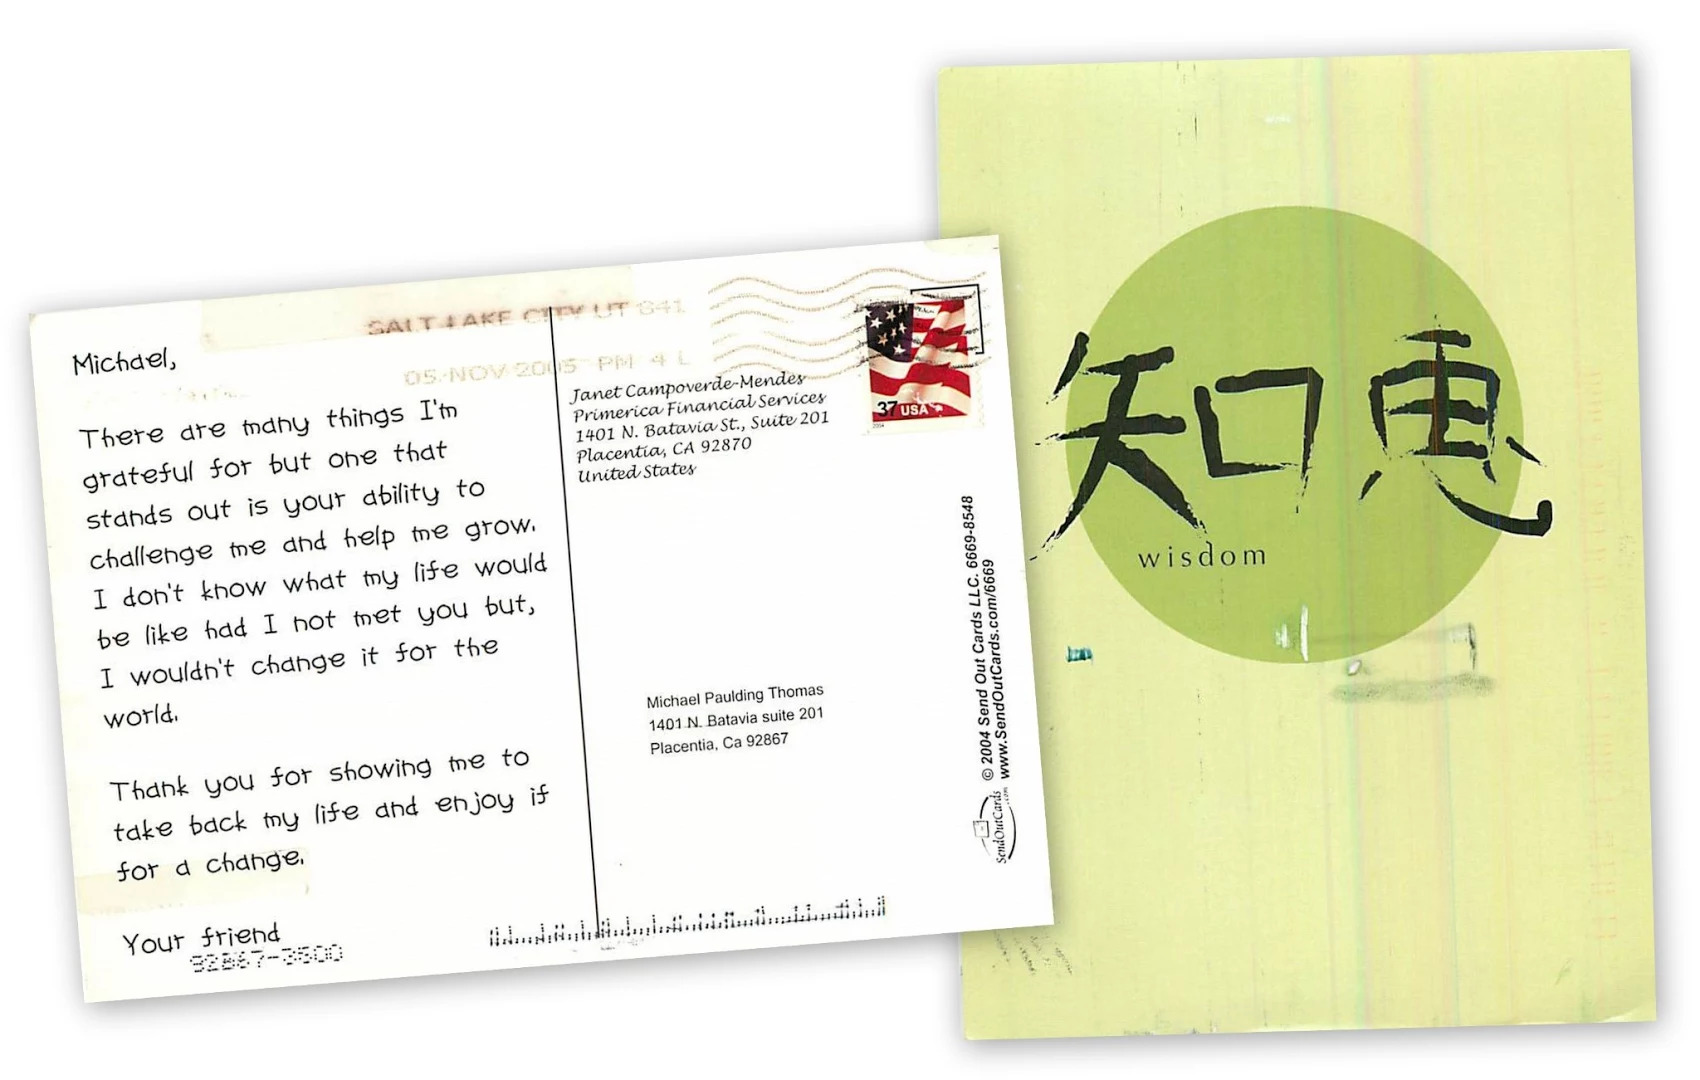 SALT LAKE CITY UT 841
05 NOV 2005 PM 4 L
Michael,
There are many things I'm
grateful for but one that
stands out is your ability to
challenge me and help me grow.
I don't know what my life would
be like had I not met you but,
I wouldn't change it for the
world.
Thank you for showing me to
take back my life and enjoy if
for a change.
Your friend
92867-3500
Janet Campoverde-Mendes
Primerica Financial Services
1401 N. Batavia St., Suite 201
Placentia, CA 92870
United States
37 USA
2004
Michael Paulding Thomas
1401 N. Batavia suite 201
Placentia, Ca 92867
© 2004 Send Out Cards LLC. 6669-8548
www.SendOutCards.com/6669
SendOutCards
.com
知恵
wisdom